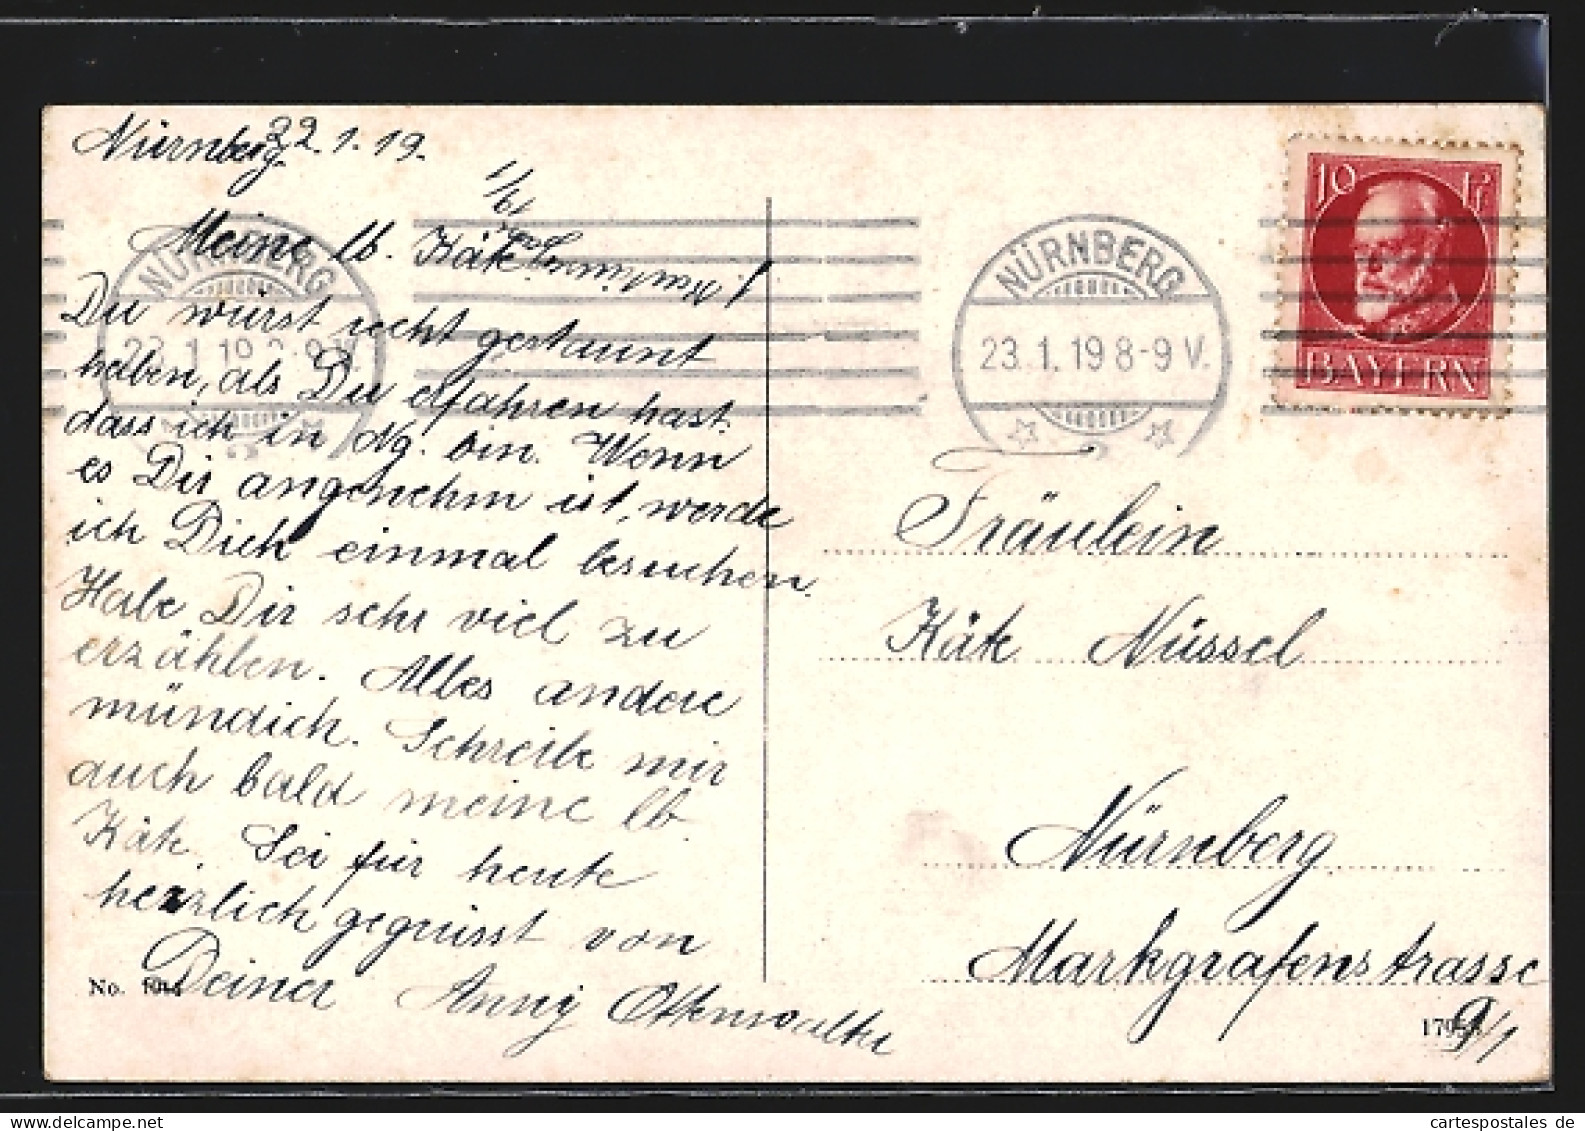 Nürnberg 22.1.19.
Meine lb. Käte!
Du wirst recht gestaunt
haben, als Du erfahren hast
dass ich in Ng. bin. Wenn
es Dir angenehm ist, werde
ich Dich einmal besuchen.
Habe Dir sehr viel zu
erzählen. Alles andere
mündich. Schreibe mir
auch bald meine lb.
Käte. Sei für heute
herzlich gegrüsst von
Deiner Anny Ottenwalter
No.
NÜRNBERG
23.1.19 8-9 V.
NÜRNBERG
23.1.19 8-9 V.
10 Pf
BAYERN
Fräulein
Käte Nüssel
Nürnberg
Markgrafenstrasse
9/1
cartespostales de